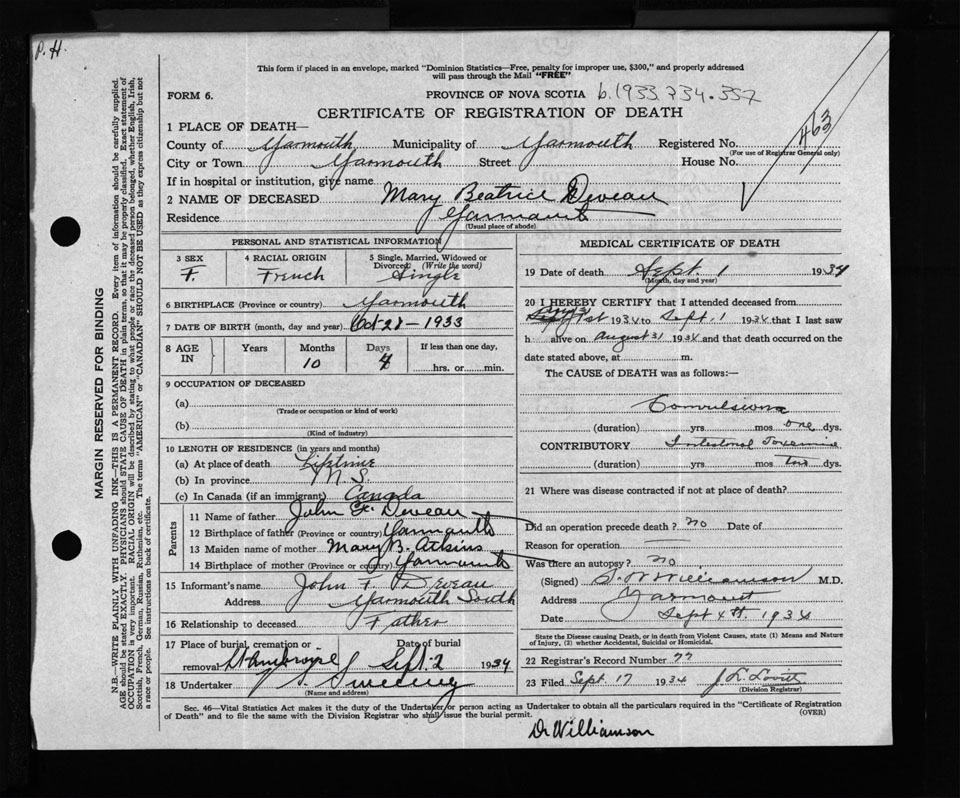 P. H.
This form if placed in an envelope, marked "Dominion Statistics—Free, penalty for improper use, $300," and properly addressed
will pass through the Mail "FREE"
FORM 6.
PROVINCE OF NOVA SCOTIA b. 1933 234.337
CERTIFICATE OF REGISTRATION OF DEATH
463
1 PLACE OF DEATH—
County of Yarmouth Municipality of Yarmouth Registered No.
(For use of Registrar General only)
City or Town Yarmouth Street House No.
If in hospital or institution, give name
2 NAME OF DECEASED Mary Beatrice Deveau
Residence Yarmouth
(Usual place of abode)
PERSONAL AND STATISTICAL INFORMATION
3 SEX 4 RACIAL ORIGIN 5 Single, Married, Widowed or Divorced (Write the word)
F. French Single
6 BIRTHPLACE (Province or country) Yarmouth
7 DATE OF BIRTH (month, day and year) Oct 28-1933
8 AGE IN Years Months Days If less than one day,
10 4 hrs. or min.
9 OCCUPATION OF DECEASED
(a)
(Trade or occupation or kind of work)
(b)
(Kind of industry)
10 LENGTH OF RESIDENCE (in years and months)
(a) At place of death Lifetime
(b) In province N.S.
(c) In Canada (if an immigrant) Canada
Parents
11 Name of father John F. Deveau
12 Birthplace of father (Province or country) Yarmouth
13 Maiden name of mother Mary B. Atkins
14 Birthplace of mother (Province or country) Yarmouth
15 Informant's name John F Deveau
Address Yarmouth South
16 Relationship to deceased Father
17 Place of burial, cremation or removal St Ambroise Date of burial Sept. 2 1934
18 Undertaker V. S. Sweeny
(Name and address)
MEDICAL CERTIFICATE OF DEATH
19 Date of death Sept. 1 1934
(Month, day and year)
20 I HEREBY CERTIFY that I attended deceased from
1st 1934 to Sept. 1 1934 that I last saw
h alive on August 31 1934 and that death occurred on the
date stated above, at m.
The CAUSE of DEATH was as follows:—
Convulsions
(duration) yrs mos one dys.
CONTRIBUTORY Intestinal Toxemia
(duration) yrs mos two dys.
21 Where was disease contracted if not at place of death?
Did an operation precede death? no Date of
Reason for operation
Was there an autopsy? no
(Signed) Williamson M.D.
Address Yarmouth
Date Sept 4th 1934
State the Disease causing Death, or in death from Violent Causes, state (1) Means and Nature
of Injury, (2) whether Accidental, Suicidal or Homicidal.
22 Registrar's Record Number 77
23 Filed Sept. 17 1934 J. L. Lovitt
(Division Registrar)
Sec. 46—Vital Statistics Act makes it the duty of the Undertaker or person acting as Undertaker to obtain all the particulars required in the "Certificate of Registration
of Death" and to file the same with the Division Registrar who shall issue the burial permit.
(OVER)
Dr Williamson
MARGIN RESERVED FOR BINDING
N.B.—WRITE PLAINLY WITH UNFADING INK—THIS IS A PERMANENT RECORD. Every item of information should be carefully supplied.
AGE should be stated EXACTLY. PHYSICIANS should STATE CAUSE OF DEATH in plain terms, so that it may be properly classified. Exact statement of
OCCUPATION is very important. RACIAL ORIGIN will be described by stating to what people or race the deceased person belonged, whether English, Irish,
Scottish, French, German, Russian, Ruthenian, etc. The terms "AMERICAN" or "CANADIAN" SHOULD NOT BE USED as they express citizenship but not
a race or people. See instructions on back of certificate.